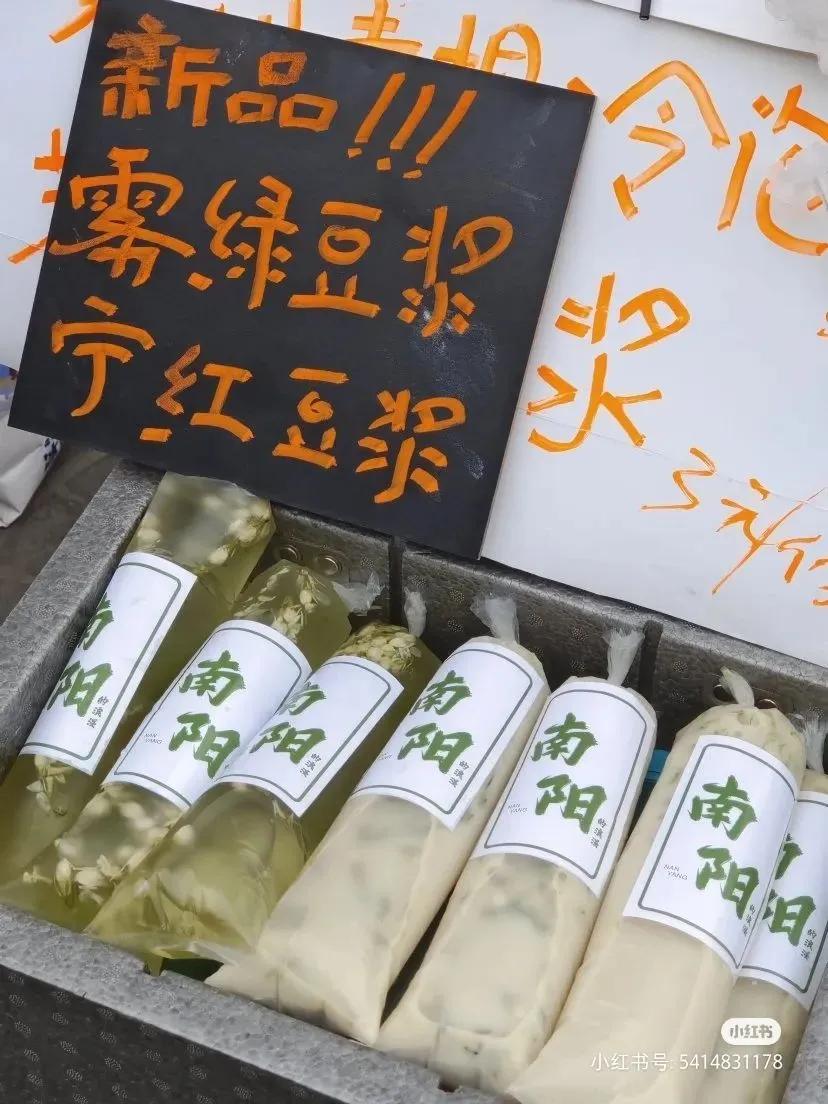 新品!!!
雾.绿豆浆
宁.红豆浆
冷
浆
3元/
南阳
南阳
NAN YANG
南阳
南阳
南阳
NAN YANG
南阳
NAN YANG
南阳
小红书
小红书号: 5414831178